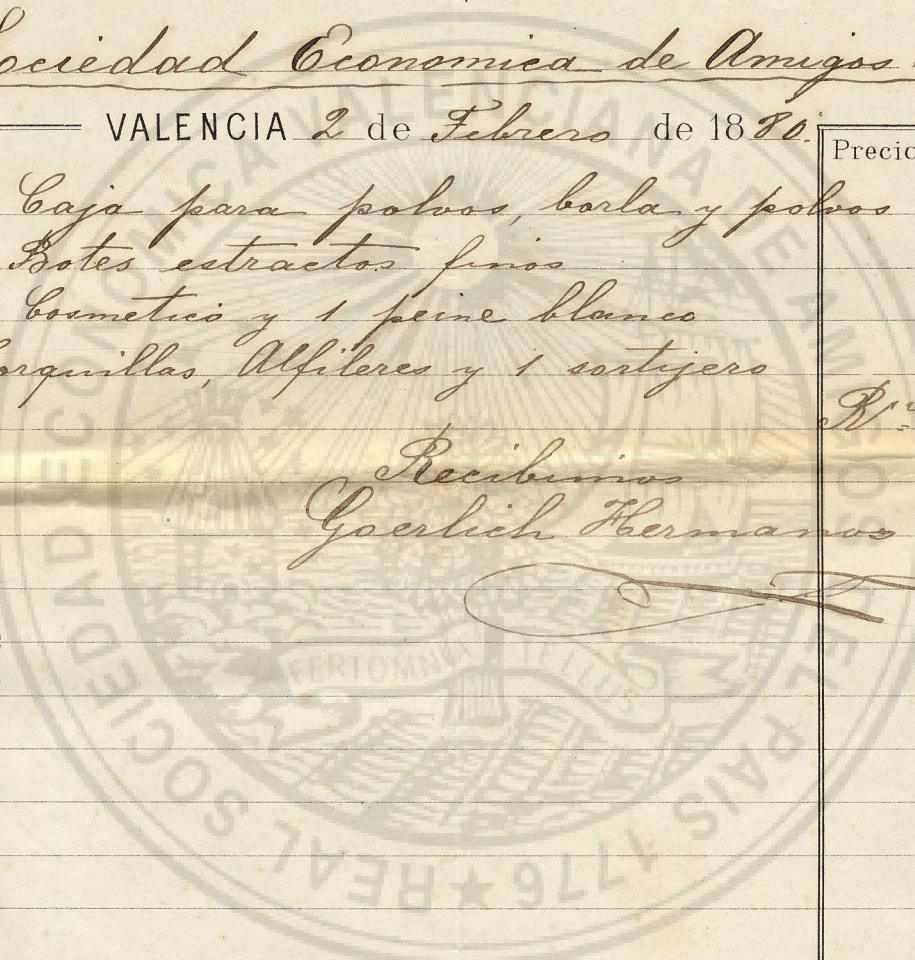 Sociedad Economica de Amigos
VALENCIA 2 de Febrero de 1880.
Precio
Caja para polvos, borla y polvos
Botes estractos finos
Cosmetico y 1 peine blanco
orquillas, Alfileres y 1 sortijero
Recibimos
Goerlich Hermanos
REAL SOCIEDAD ECONOMICA VALENCIANA DE AMIGOS DEL PAIS 1776
FERT OMNIA TELLUS